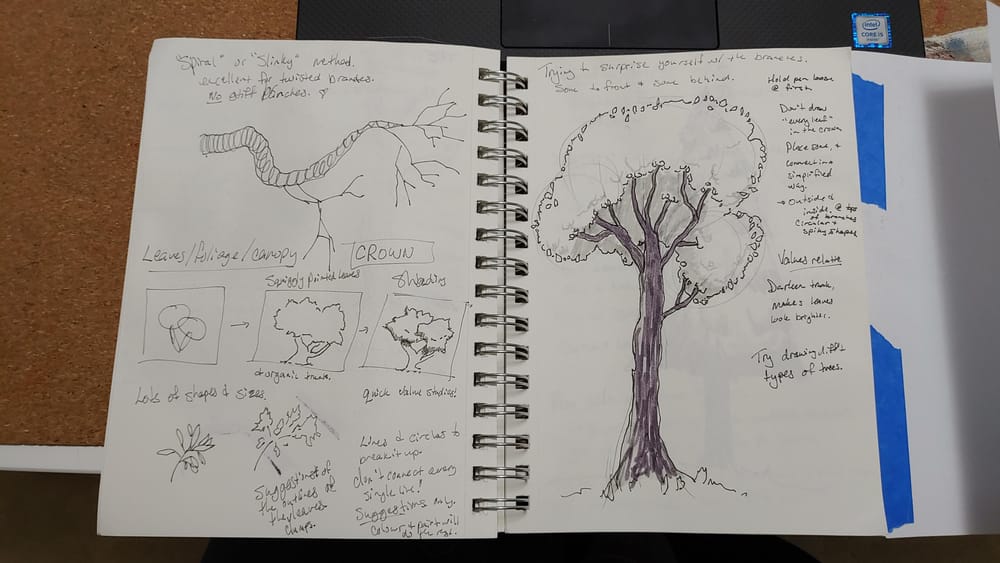 "Spiral" or "Slinky" method.
excellent for twisted branches.
No stiff branches.
Leaves/foliage/canopy
CROWN
Squiggly pointed leaves
Shading
organic trunks.
Quick value studies!
Lots of shapes & sizes.
Suggestions of
the outlines of
the leaves
clumps.
Lines & circles to
break it up.
don't connect every
single line!
Suggestions only.
Colour & paint will
do the rest.
Trying to surprise yourself w/ the branches.
Some to front & some behind.
Hold pen loose
@ first
Don't draw
"every leaf"
in the crown
Place some, &
connect in a
simplified
way.
→ Outside &
inside, @ tips
of branches
circular &
spiky shaped
Values relate
Darken trunk,
makes leaves
look brighter.
Try drawing diff't
types of trees.
intel
CORE i5